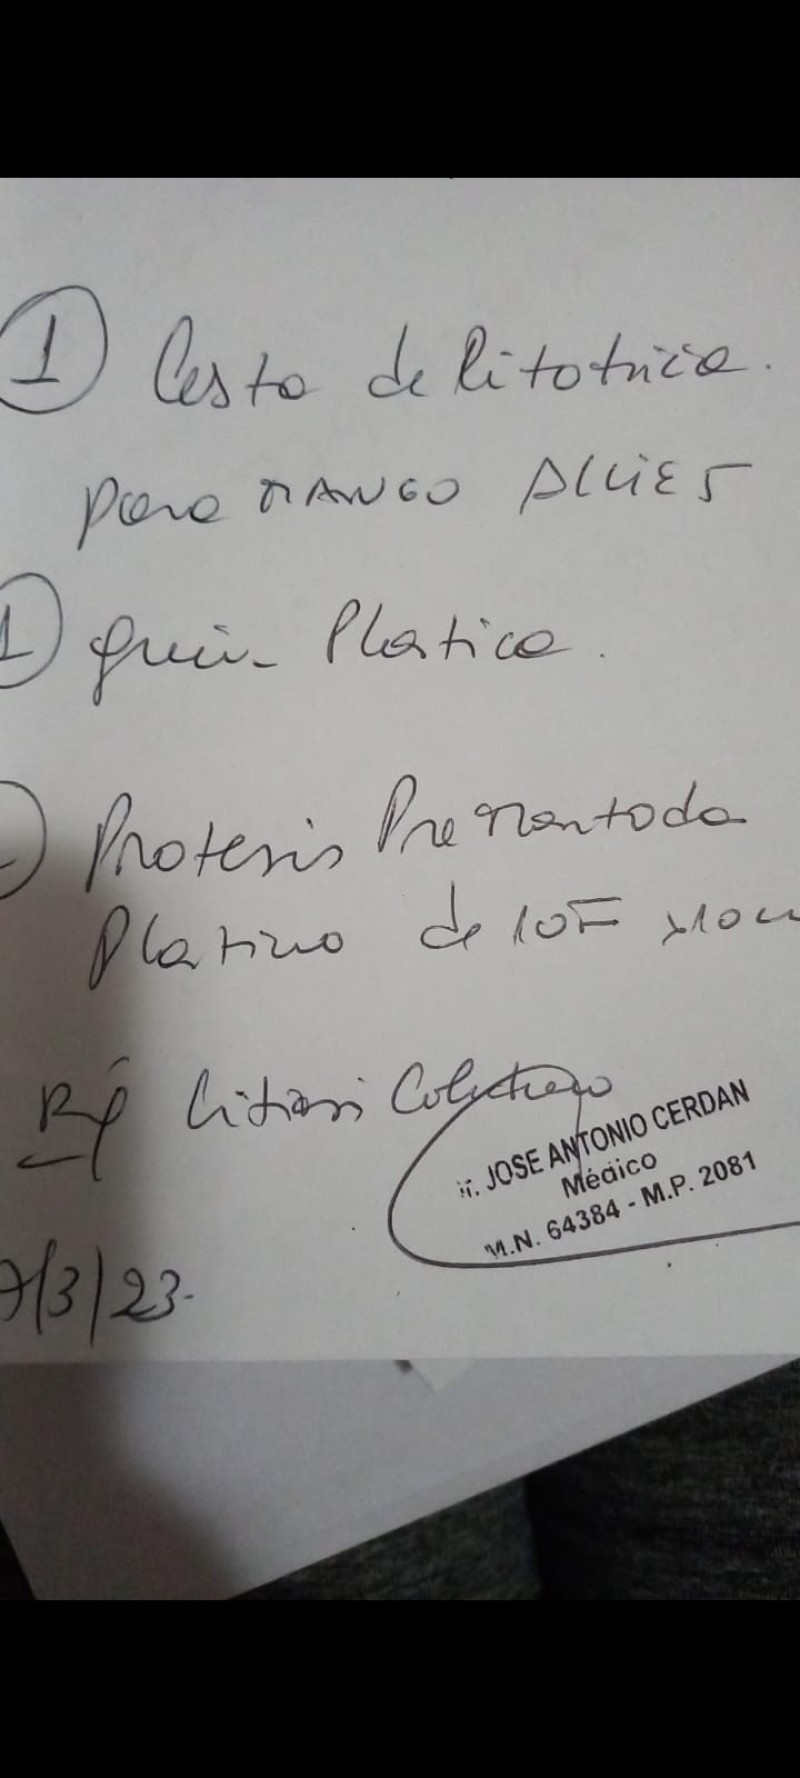 1 Cesta de litotricia.
para MANGO ALLIES
1 guia Plastica.
Protesis Premontada
Platino de 10F x10cm
Rp Litiasis Coledoco
Dr. JOSE ANTONIO CERDAN
Médico
M.N. 64384 - M.P. 2081
7/3/23-